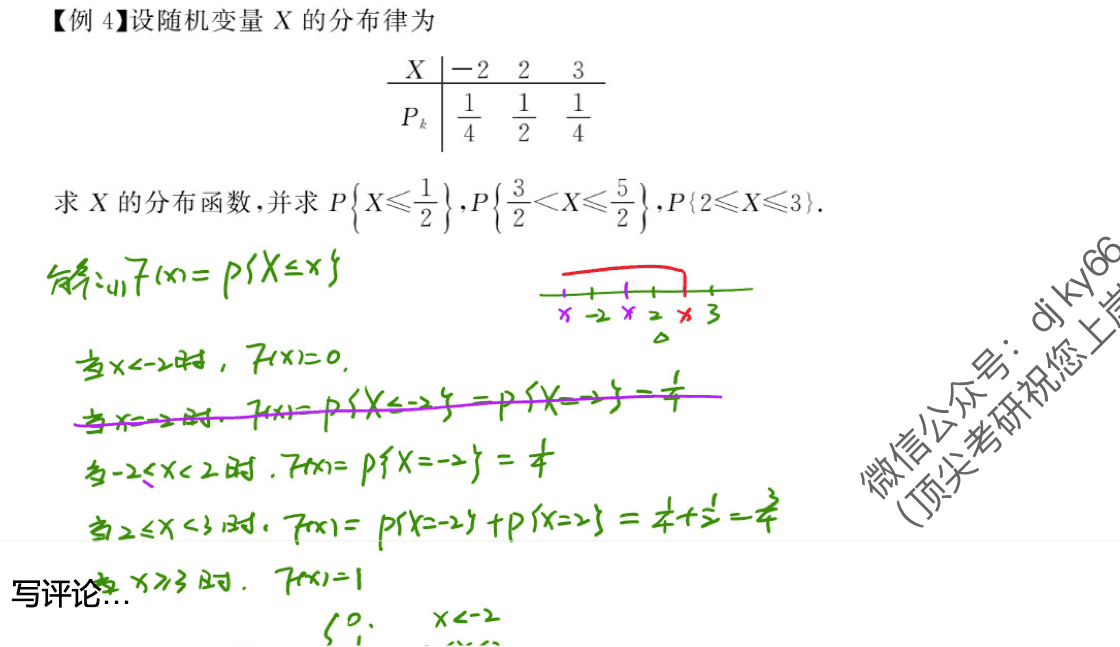 【例 4】设随机变量 X 的分布律为
X -2 2 3
P_k 1/4 1/2 1/4
求 X 的分布函数,并求 P{X≤1/2},P{3/2<X≤5/2},P{2≤X≤3}.
解:(1) F(x)= P{X≤x}
x -2 x 2 x 3
当x<-2时, F(x)=0.
当x=-2时. F(x)= P{X≤-2} =P{X=-2}=1/4
当-2≤x<2时. F(x)= P{X=-2} = 1/4
当2≤x<3时. F(x)= P{X=-2}+P{X=2} = 1/4+1/2=3/4
当 x≥3时. F(x)=1
写评论...
{0. x<-2
微信公众号: djky66
(顶尖考研祝您上岸